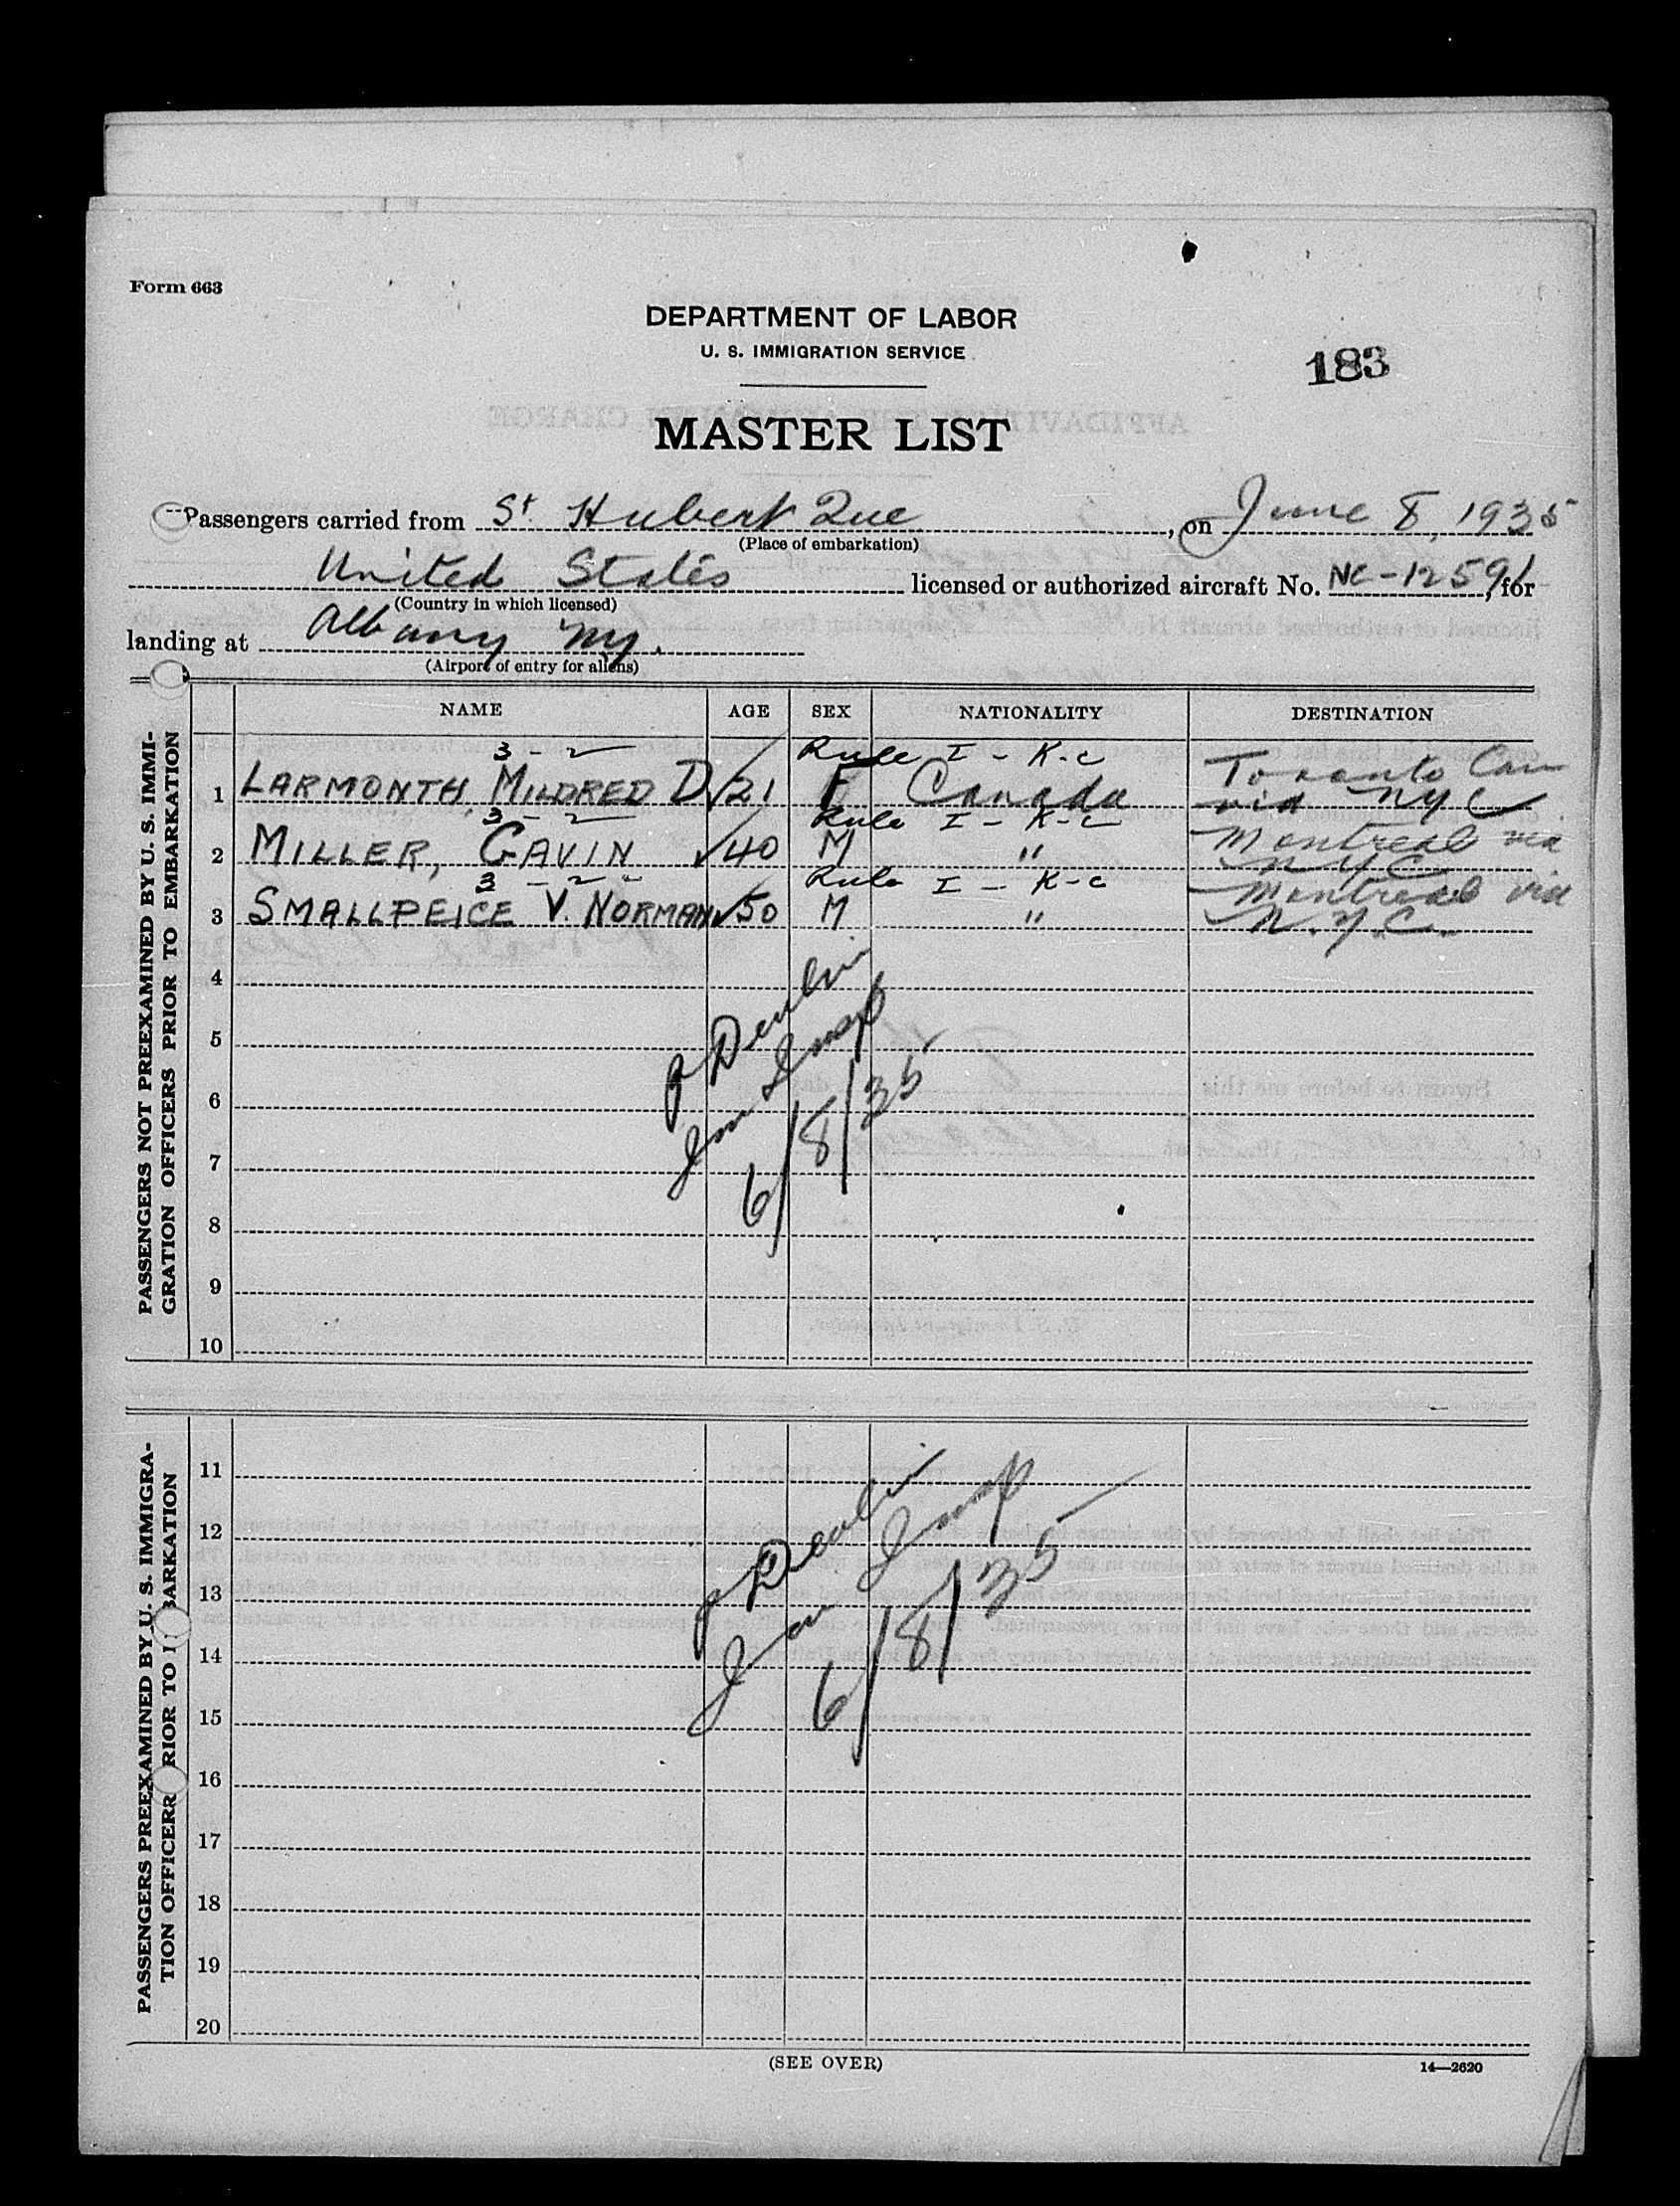 Form 663
DEPARTMENT OF LABOR
U. S. IMMIGRATION SERVICE
183
MASTER LIST
Passengers carried from St. Hubert Que, on June 8, 1935
(Place of embarkation)
United States licensed or authorized aircraft No. NC-12591, for
(Country in which licensed)
landing at Albany NY.
(Airport of entry for aliens)
PASSENGERS NOT PREEXAMINED BY U. S. IMMI-
GRATION OFFICERS PRIOR TO EMBARKATION
NAME AGE SEX NATIONALITY DESTINATION
3 - 2 Rule I - K-c Toronto Can
1 LARMONTH, MILDRED D √21 F Canada via NYC
3 - 2 Rule I - K-c Montreal via
2 MILLER, GAVIN √40 M " NYC
3 - 2 - Rule I - K-c Montreal via
3 SMALLPEICE V. NORMAN √50 M " N.Y.C.
4
5
6
7
8
9
10
P Devlin
Imm Insp
6/8/35
PASSENGERS PREEXAMINED BY U. S. IMMIGRA-
TION OFFICERR PRIOR TO BARKATION
11
12
13
14
15
16
17
18
19
20
P Devlin
Imm Insp
6/8/35
(SEE OVER)
14—2620